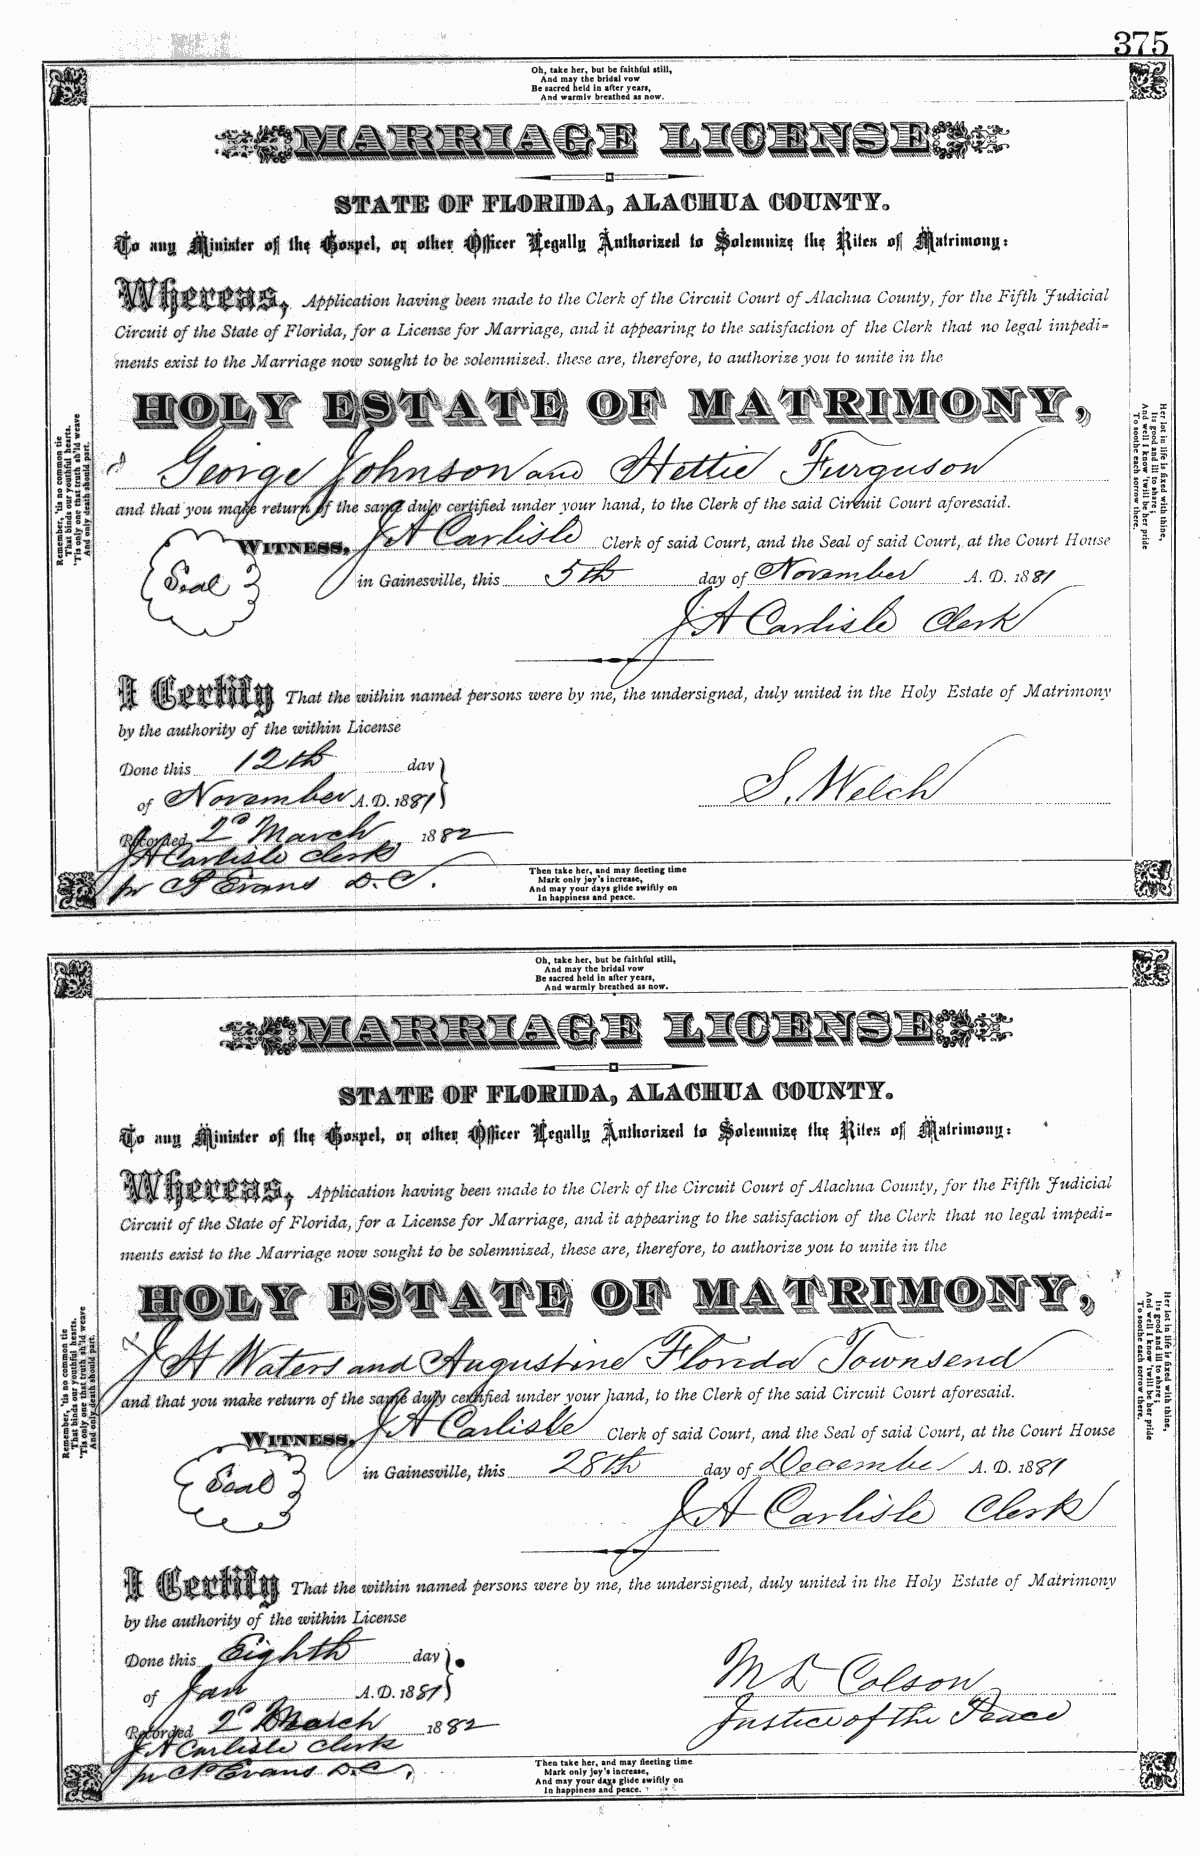 375
Oh, take her, but be faithful still,
And may the bridal vow
Be sacred held in after years,
And warmly breathed as now.
MARRIAGE LICENSE
STATE OF FLORIDA, ALACHUA COUNTY.
To any Minister of the Gospel, or other Officer Legally Authorized to Solemnize the Rites of Matrimony:
Whereas, Application having been made to the Clerk of the Circuit Court of Alachua County, for the Fifth Judicial
Circuit of the State of Florida, for a License for Marriage, and it appearing to the satisfaction of the Clerk that no legal impedi-
ments exist to the Marriage now sought to be solemnized, these are, therefore, to authorize you to unite in the
HOLY ESTATE OF MATRIMONY,
George Johnson and Hettie Furguson
and that you make return of the same duly certified under your hand, to the Clerk of the said Circuit Court aforesaid.
WITNESS, J A Carlisle Clerk of said Court, and the Seal of said Court, at the Court House
Seal
in Gainesville, this 5th day of November A. D. 1881
J A Carlisle Clerk
I Certify That the within named persons were by me, the undersigned, duly united in the Holy Estate of Matrimony
by the authority of the within License
Done this 12th day
of November A. D. 1881
S. Welch
Recorded 2d March 1882
J A Carlisle Clerk
pr Evans D. C.
Remember, 'tis no common tie
That binds our youthful hearts,
'Tis only one that truth sh'ld weave
And only death should part.
Her lot in life is fixed with thine,
Its good and ill to share;
And well I know 'twill be her pride
To soothe each sorrow there.
Then take her, and may fleeting time
Mark only joy's increase,
And may your days glide swiftly on
In happiness and peace.
Oh, take her, but be faithful still,
And may the bridal vow
Be sacred held in after years,
And warmly breathed as now.
MARRIAGE LICENSE
STATE OF FLORIDA, ALACHUA COUNTY.
To any Minister of the Gospel, or other Officer Legally Authorized to Solemnize the Rites of Matrimony:
Whereas, Application having been made to the Clerk of the Circuit Court of Alachua County, for the Fifth Judicial
Circuit of the State of Florida, for a License for Marriage, and it appearing to the satisfaction of the Clerk that no legal impedi-
ments exist to the Marriage now sought to be solemnized, these are, therefore, to authorize you to unite in the
HOLY ESTATE OF MATRIMONY,
J H Waters and Augustine Florida Townsend
and that you make return of the same duly certified under your hand, to the Clerk of the said Circuit Court aforesaid.
WITNESS, J A Carlisle Clerk of said Court, and the Seal of said Court, at the Court House
Seal
in Gainesville, this 28th day of December A. D. 1881
J A Carlisle Clerk
I Certify That the within named persons were by me, the undersigned, duly united in the Holy Estate of Matrimony
by the authority of the within License
Done this Eighth day
of Jan A. D. 1881
M L Colson
Justice of the Peace
Recorded 2d March 1882
J A Carlisle Clerk
pr Evans D. C.
Remember, 'tis no common tie
That binds our youthful hearts.
'Tis only one that truth sh'ld weave
And only death should part.
Her lot in life is fixed with thine,
Its good and ill to share;
And well I know 'twill be her pride
To soothe each sorrow there.
Then take her, and may fleeting time
Mark only joy's increase,
And may your days glide swiftly on
In happiness and peace.